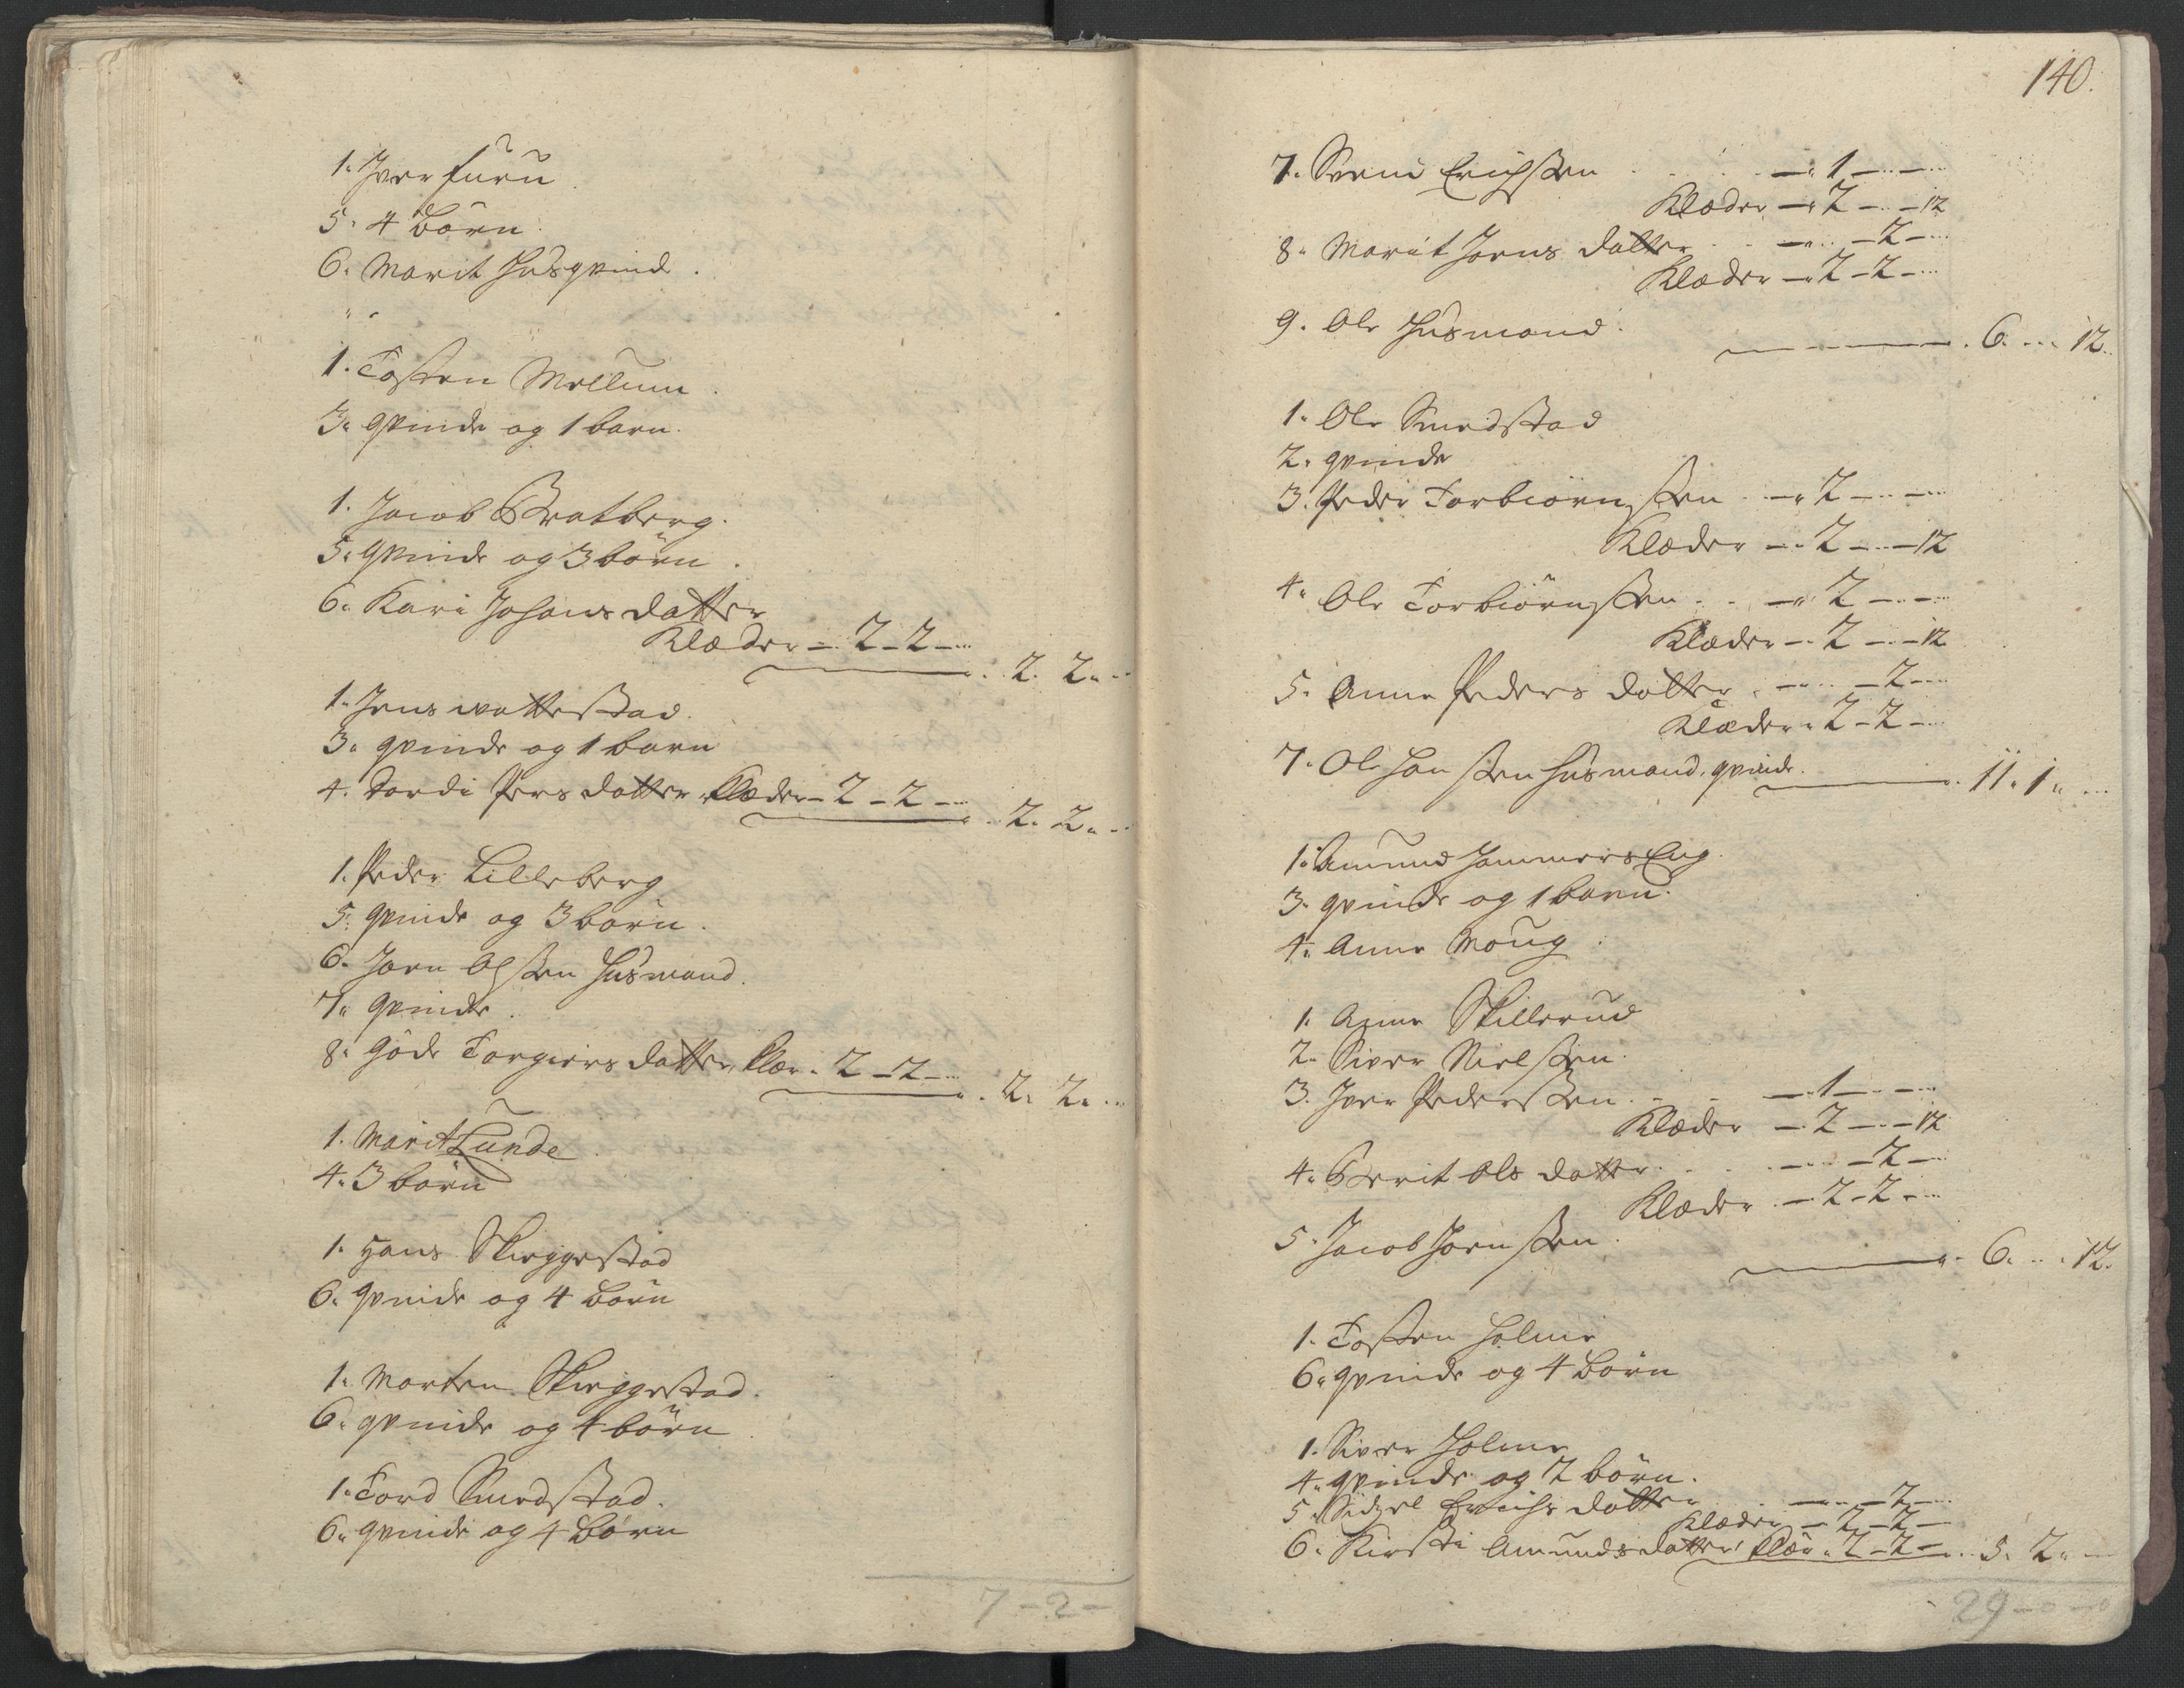 1. Iver Furu
5. 4 Börn
6. Marit Huusqvind.
1. Tosten Mellum
3. Qvinde og 1 barn.
1. Jacob Bratberg.
5. Qvinde og 3 börn.
6. Kari Johans datter
Klæder - 2 - 2 -
2. 2. -
1. Jens Wattestad.
3. qvinde og 1 barn
4. Tordi Pers datter, Klæder - 2 - 2 -
2. 2. -
1. Peder Lilleberg
5. Qvinde og 3 börn.
6. Joen Olssen Huusmand.
7. Qvinde.
8. Göde Torgiers datter, Klær - 2 - 2 -
2. 2. -
1. Marit Lunde
4. 3 börn
1. Hans Skieggestad
6. Qvinde og 4 Börn
1. Morten Skieggestad.
6. qvinde og 4 börn
1. Tord Smedstad.
6. Qvinde og 4 Börn
7 - 2 -
140.
7. Svend Erichssen - 1 - -
Klæder - 2 - - 12
8. Marit Joens datter - - 2 -
Klæder - 2 - 2 -
9. Ole Huusmand.
6. - 12.
1. Ole Smedstad
2. qvinde
3. Peder Torbiörnssen - 2 - -
Klæder - 2 - - 12
4. Ole Torbiörnssen - 2 - -
Klæder - 2 - - 12
5. Anne Peders datter - - 2 -
Klæder - 2 - 2 -
7. Ole Hanssen Huusmand, qvinde.
11. 1. -
1. Amund Jammers Eng.
3. qvinde og 1 barn.
4. Anne Moug.
1. Anne Skillerud
2. Siver Nielssen.
3. Iver Pederssen - 1 - -
Klæder - 2 - - 12
4. Berit Ols datter - - 2 -
Klæder - 2 - 2 -
5. Jacob Joenssen.
6. - 12.
1. Tosten Holme
6. qvinde og 4 Börn
1. Siver Holme
4. qvinde og 2 börn.
5. Sidzel Erichs datter - - 2 -
Klæder - 2 - 2 -
6. Kirsti Amunds datter, Klær - 2 - 2 - 5. 2. -
29 - 0 - 0